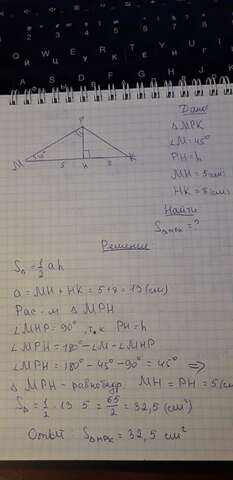 P
M 45° 5 H 8 K
Дано
△ MPK
∠M = 45°
PH = h
MH = 5(см)
HK = 8(см)
Найти
S△MPK = ?
Решение
S△ = 1/2 ah
a = MH + HK = 5+8 = 13 (см)
Рас-м △ MPH
∠MHP = 90°, т.к PH = h
∠MPH = 180° - ∠M - ∠MHP
∠MPH = 180° - 45° - 90° = 45° ⇒
△ MPH - равнобедр MH = PH = 5(см)
S△ = 1/2 · 13 · 5 = 65/2 = 32,5 (см²)
Ответ: S△MPK = 32,5 см²